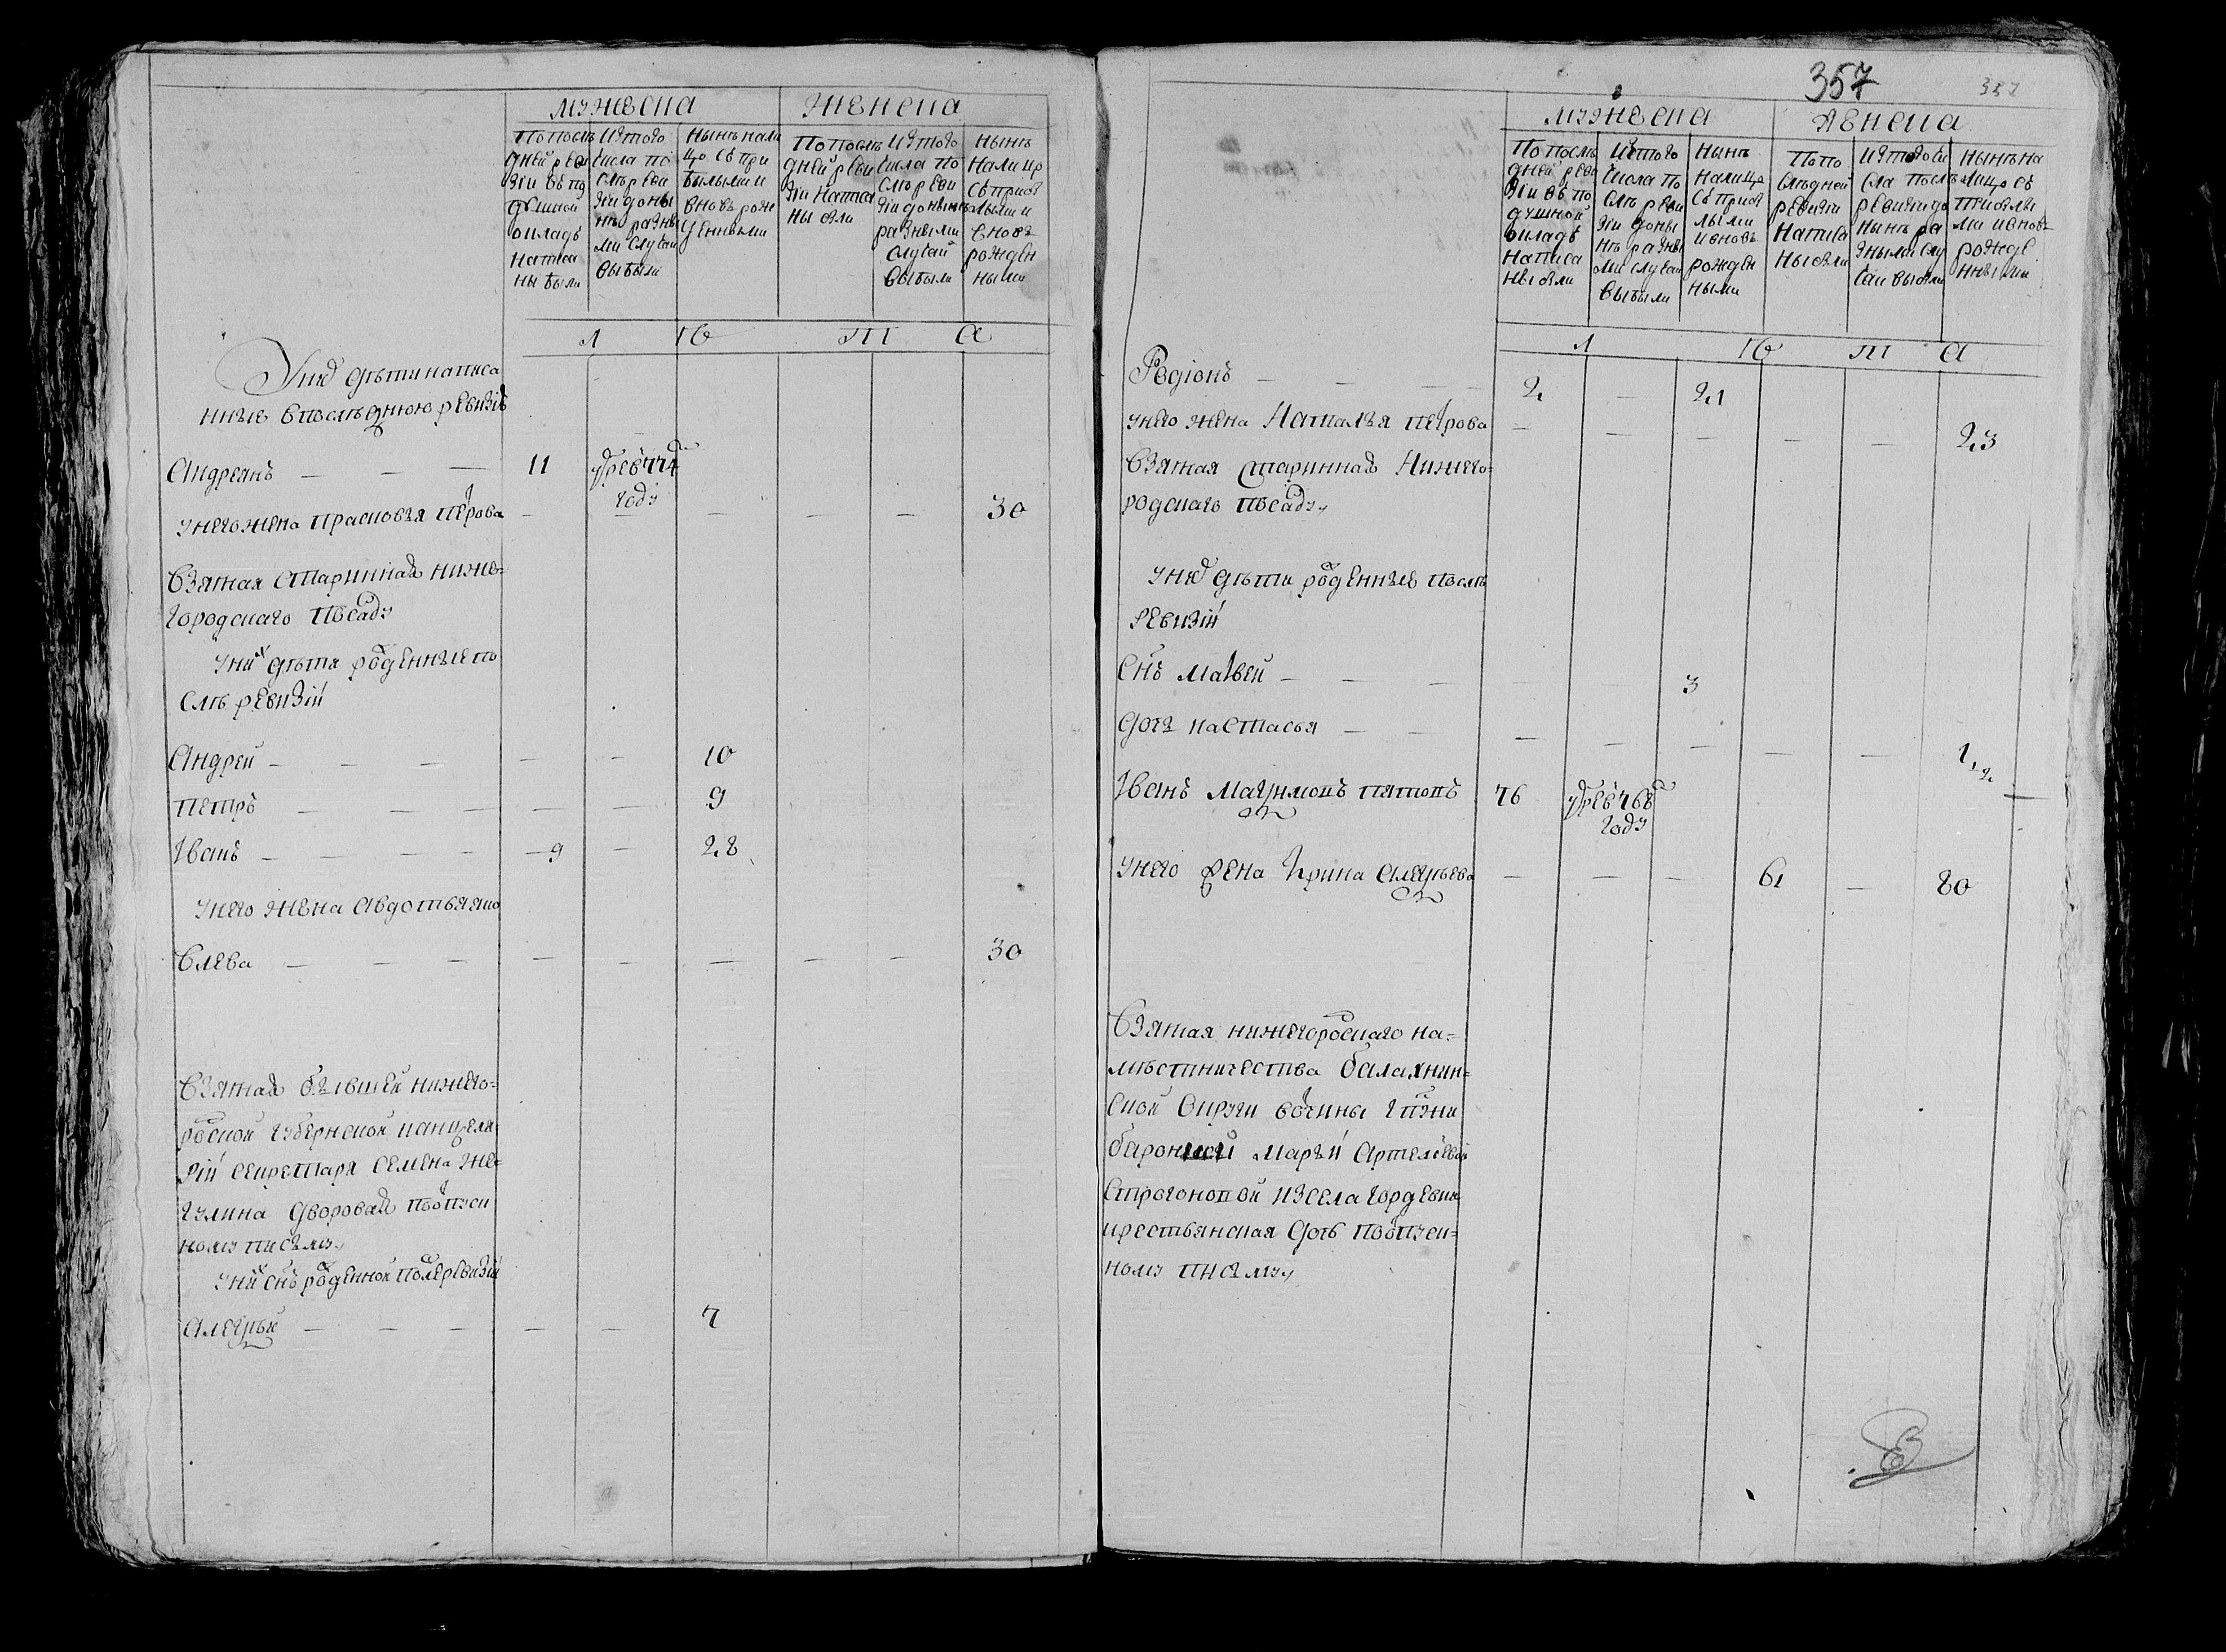 мужеска женска
По послѣ
дней реви
зіи въ по
душной
окладъ
написа
ны были
Истого
числа по
слѣ реви
зіи до ны
нѣ разны
ми случаи
выбыли
Нынѣ нали
цо съ при
былыми и
вновь рож
денными
По послѣ
дней реви
зіи написа
ны были
Изтого
числа по
слѣ реви
зіи до нынѣ
разными
случаи
выбыли
нынѣ
на лицо
съ прибы
лыми и
вновь
рожден
ными
л ѣ т а
У них дѣти написа
нные в последнюю ревизію
Андреянъ — — — 11 умре в 774
году
у него жена Прасковья Петрова — — — — — 30
взятая старинная нижего=
городскаго посаду
у них дѣти рожденные по
слѣ ревизіи
Андрей — — — — — 10
Петръ — — — — — 9
Iванъ — — — — 9 — 28
у него жена Авдотья Яко
влева — — — — — — — — 30
взятая бывшей нижего=
родской губернской канцеля
ріи секретаря Семена Же
гулина дворовая по отпуск
ному письму
у них снъ рожденной после ревизіи
Алексѣй — — — — — 7
357
357
мужеска женска
По послѣ
дней реви
зіи въ по
душной
окладъ
написа
ны были
Истого
числа по
слѣ реви
зіи до ны
нѣ разны
ми случаи
выбыли
Нынѣ
налицо
съ прибы
лыми
и вновь
рожден
ными
По по
слѣдней
ревизіи
написа
ны были
Изтого чи
сла послѣ
ревизіи до
нынѣ ра
зными слу
чаи выбыли
нынѣ на
лицо съ
прибылы
ми и внов
рожде
нными
л ѣ т а
Родіонъ — — — 2 — 21
у него жена Наталья Петрова — — — — — 23
взятая старинная Нижего=
родскаго посаду
у них дѣти рожденные послѣ
ревизіи
Снъ Матвей — — — — — 3
дочь Настасья — — — — — — — 1 1/2
Iванъ Максимовъ Пятовъ 76 умре в 768
году
у него жена Iрина Алексѣева — — — 61 — 80
взятая нижегородскаго на=
мѣстничества балахнин=
ской округи вотчины гпжи
баронши Марьи Артемьевой
Строгоновой из села Гордѣевки
крестьянская дочь по отпуск=
ному письму